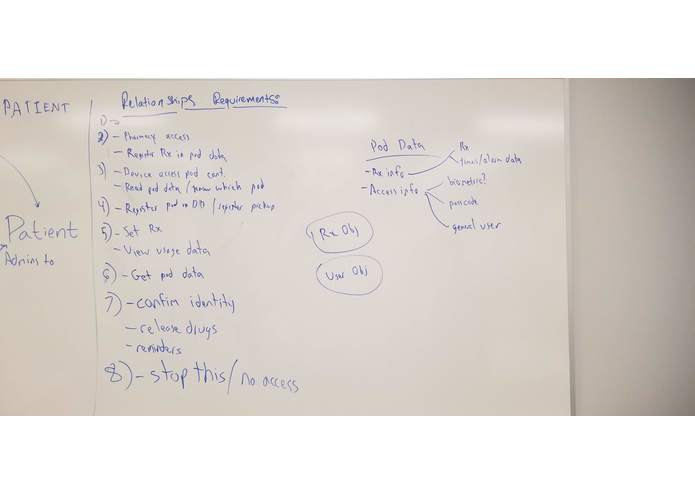 PATIENT
Patient
Admins to
Relationships Requirements:
1) -
2) - Pharmacy access
- Register Rx in pod data
3) - Device access pod cont.
- Read pod data / know which pod
4) - Register pod in DB / register pickup
5) - Set Rx
- View usage data
6) - Get pod data
7) - confirm identity
- release drugs
- reminders
8) - stop this / no access
Rx Obj
User Obj
Pod Data
- Rx info
Rx
times/alarm data
- Access info
biometric?
passcode
general user